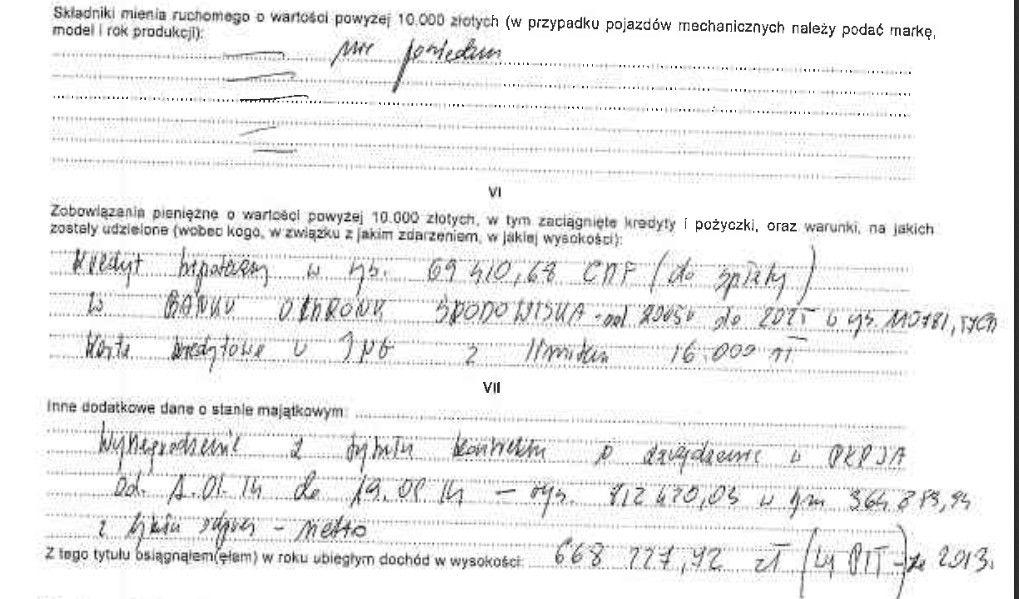 Składniki mienia ruchomego o wartości powyżej 10.000 złotych (w przypadku pojazdów mechanicznych należy podać markę,
model i rok produkcji):
nie posiadam
VI
Zobowiązania pieniężne o wartości powyżej 10.000 złotych, w tym zaciągnięte kredyty i pożyczki, oraz warunki, na jakich
zostały udzielone (wobec kogo, w związku z jakim zdarzeniem, w jakiej wysokości):
Kredyt hipoteczny w wys. 69 410,68 CHF (do spłaty)
w BANKU OCHRONY ŚRODOWISKA - od 2005r do w wys.
Karta kredytowa w ING z limitem 16.000 zł
VII
Inne dodatkowe dane o stanie majątkowym:
Wynagrodzenie z tytułu kontraktu o zarządzanie w PKP SA
od 1.01.14 do - wys. w tym
z tytułu - netto
Z tego tytułu osiągnąłem(ęłam) w roku ubiegłym dochód w wysokości: 668 727,92 zł PIT za 2013.